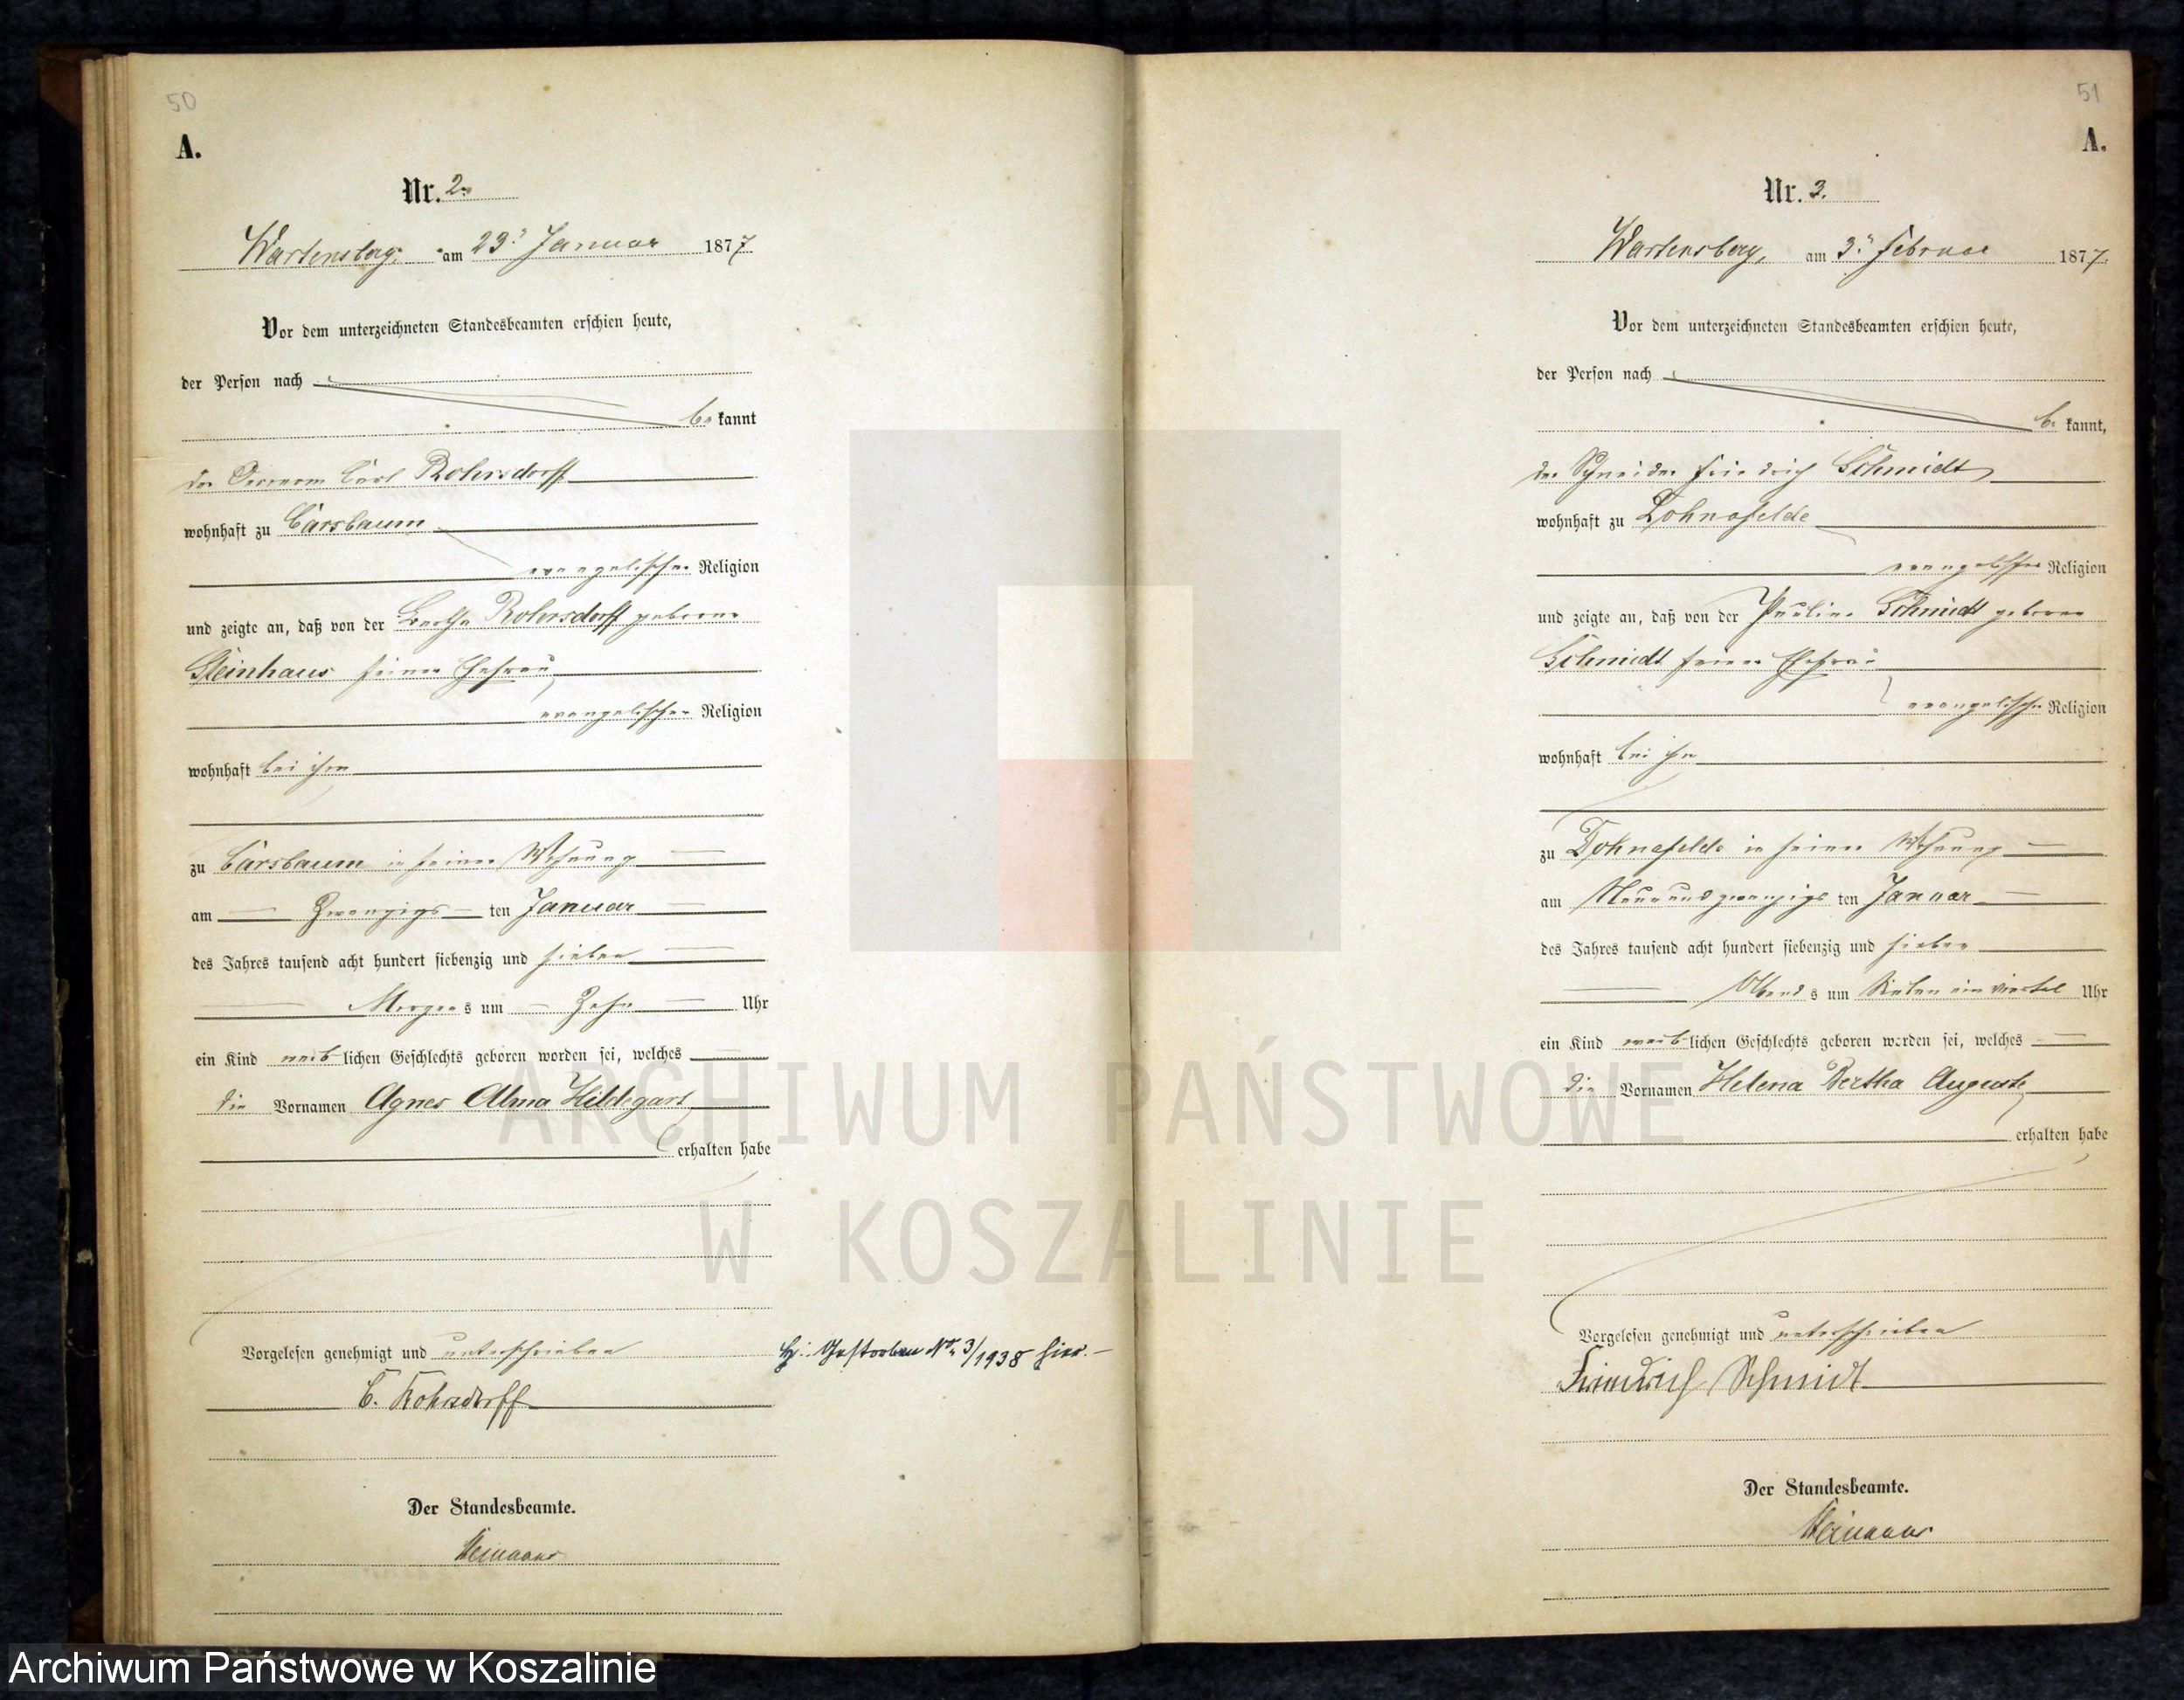 50
A.
Nr. 2.
Wartensberg, am 23. Januar 1877.
Vor dem unterzeichneten Standesbeamten erschien heute,
der Person nach
be kannt
der Oeconom Carl Rohrsdorff
wohnhaft zu Carsbaum
evangelischer Religion
und zeigte an, daß von der Bertha Rohrsdorff geborne
Steinhaus seiner Ehefrau
evangelischer Religion
wohnhaft bei ihm
zu Carsbaum in seiner Wohnung
am Zwanzigs ten Januar
des Jahres tausend acht hundert siebenzig und sieben
Morgen s um Zehn Uhr
ein Kind weib lichen Geschlechts geboren worden sei, welches
die Vornamen Agnes Alma Hildegart
erhalten habe
Vorgelesen genehmigt und unterschrieben
C. Rohrsdorff
Der Standesbeamte.
H: Gestorben Nr. 3/1938 hier. –
51
A.
Nr. 3.
Wartensberg, am 3. Februar 1877.
Vor dem unterzeichneten Standesbeamten erschien heute,
der Person nach
be kannt,
der Schneider Friedrich Schmidt
wohnhaft zu Dohnafelde
evangelischer Religion
und zeigte an, daß von der Pauline Schmidt geborne
Schmidt seiner Ehefrau
evangelischer Religion
wohnhaft bei ihm
zu Dohnafelde in seiner Wohnung
am Neunundzwanzigs ten Januar
des Jahres tausend acht hundert siebenzig und sieben
Abend s um Sieben ein viertel Uhr
ein Kind weib lichen Geschlechts geboren worden sei, welches
die Vornamen Helena Bertha Auguste
erhalten habe
Vorgelesen genehmigt und unterschrieben
Friedrich Schmidt
Der Standesbeamte.
ARCHIWUM PAŃSTWOWE
W KOSZALINIE
Archiwum Państwowe w Koszalinie